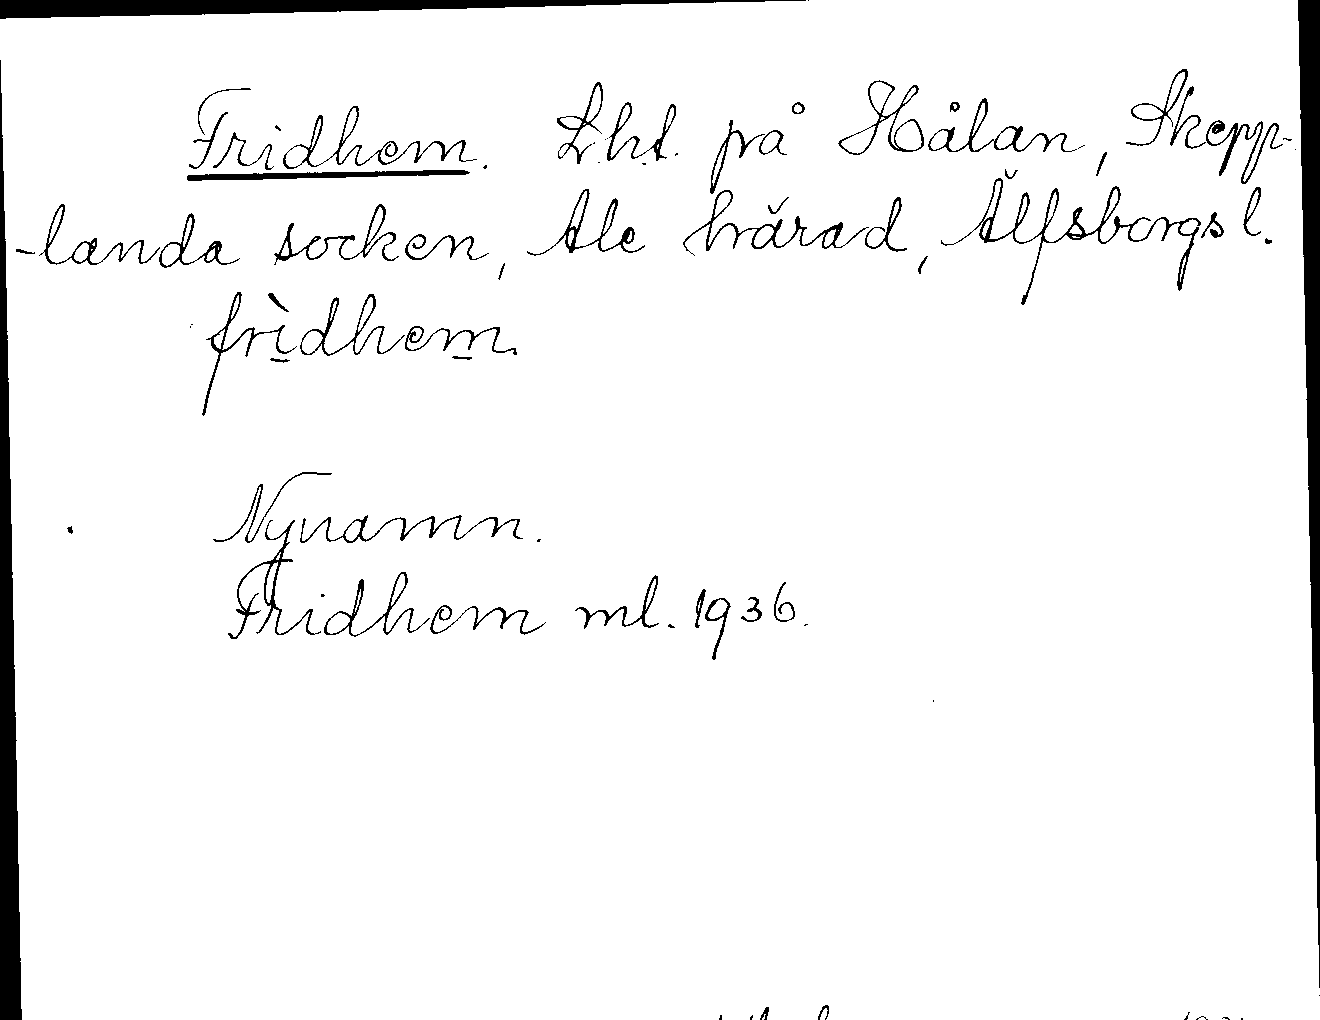 Fridhem. Lht. på Hålan, Skepp-
-landa socken, Ale härad, Älfsborgs l.
frìdhem.
Nynamn.
Fridhem ml. 1936.